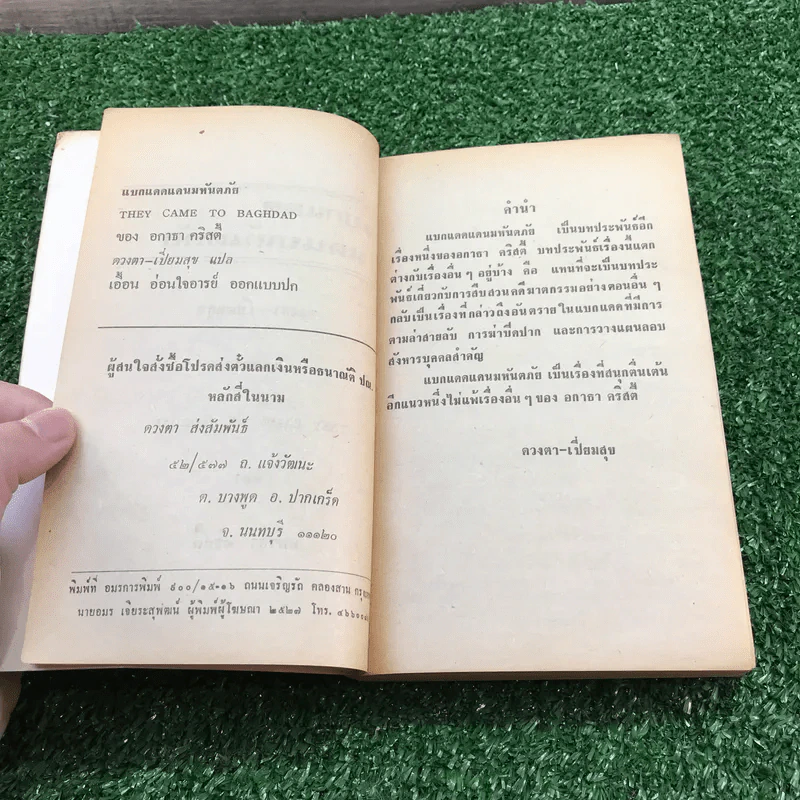 แบกแดดแดนมหันตภัย
THEY CAME TO BAGHDAD
ของ อกาธา คริสตี้
ดวงตา–เปี่ยมสุข แปล
เอื้อน อ่อนใจอารย์ ออกแบบปก
ผู้สนใจสั่งซื้อโปรดส่งตั๋วแลกเงินหรือธนาณัติ ปณ.
หลักสี่ในนาม
ดวงตา ส่งสัมพันธ์
๕๒/๕๗๗ ถ. แจ้งวัฒนะ
ต. บางพูด อ. ปากเกร็ด
จ. นนทบุรี ๑๑๑๒๐
พิมพ์ที่ อมรการพิมพ์ ๙๐๐/๑๕-๑๖ ถนนเจริญรัถ คลองสาน
นายอมร เจียระสุพัฒน์ ผู้พิมพ์ผู้โฆษณา ๒๕๒๗ โทร.
คำนำ
แบกแดดแดนมหันตภัย เป็นบทประพันธ์อีก
เรื่องหนึ่งของอกาธา คริสตี้ บทประพันธ์เรื่องนี้แตก
ต่างกับเรื่องอื่นๆ อยู่บ้าง คือ แทนที่จะเป็นบทประ
พันธ์เกี่ยวกับการสืบสวนคดีฆาตกรรมอย่างตอนอื่นๆ
กลับเป็นเรื่องที่กล่าวถึงอันตรายในแบกแดดที่มีการ
ตามล่าสายลับ การฆ่าปิดปาก และการวางแผนลอบ
สังหารบุคคลสำคัญ
แบกแดดแดนมหันตภัย เป็นเรื่องที่สนุกตื่นเต้น
อีกแนวหนึ่งไม่แพ้เรื่องอื่นๆ ของ อกาธา คริสตี้
ดวงตา–เปี่ยมสุข